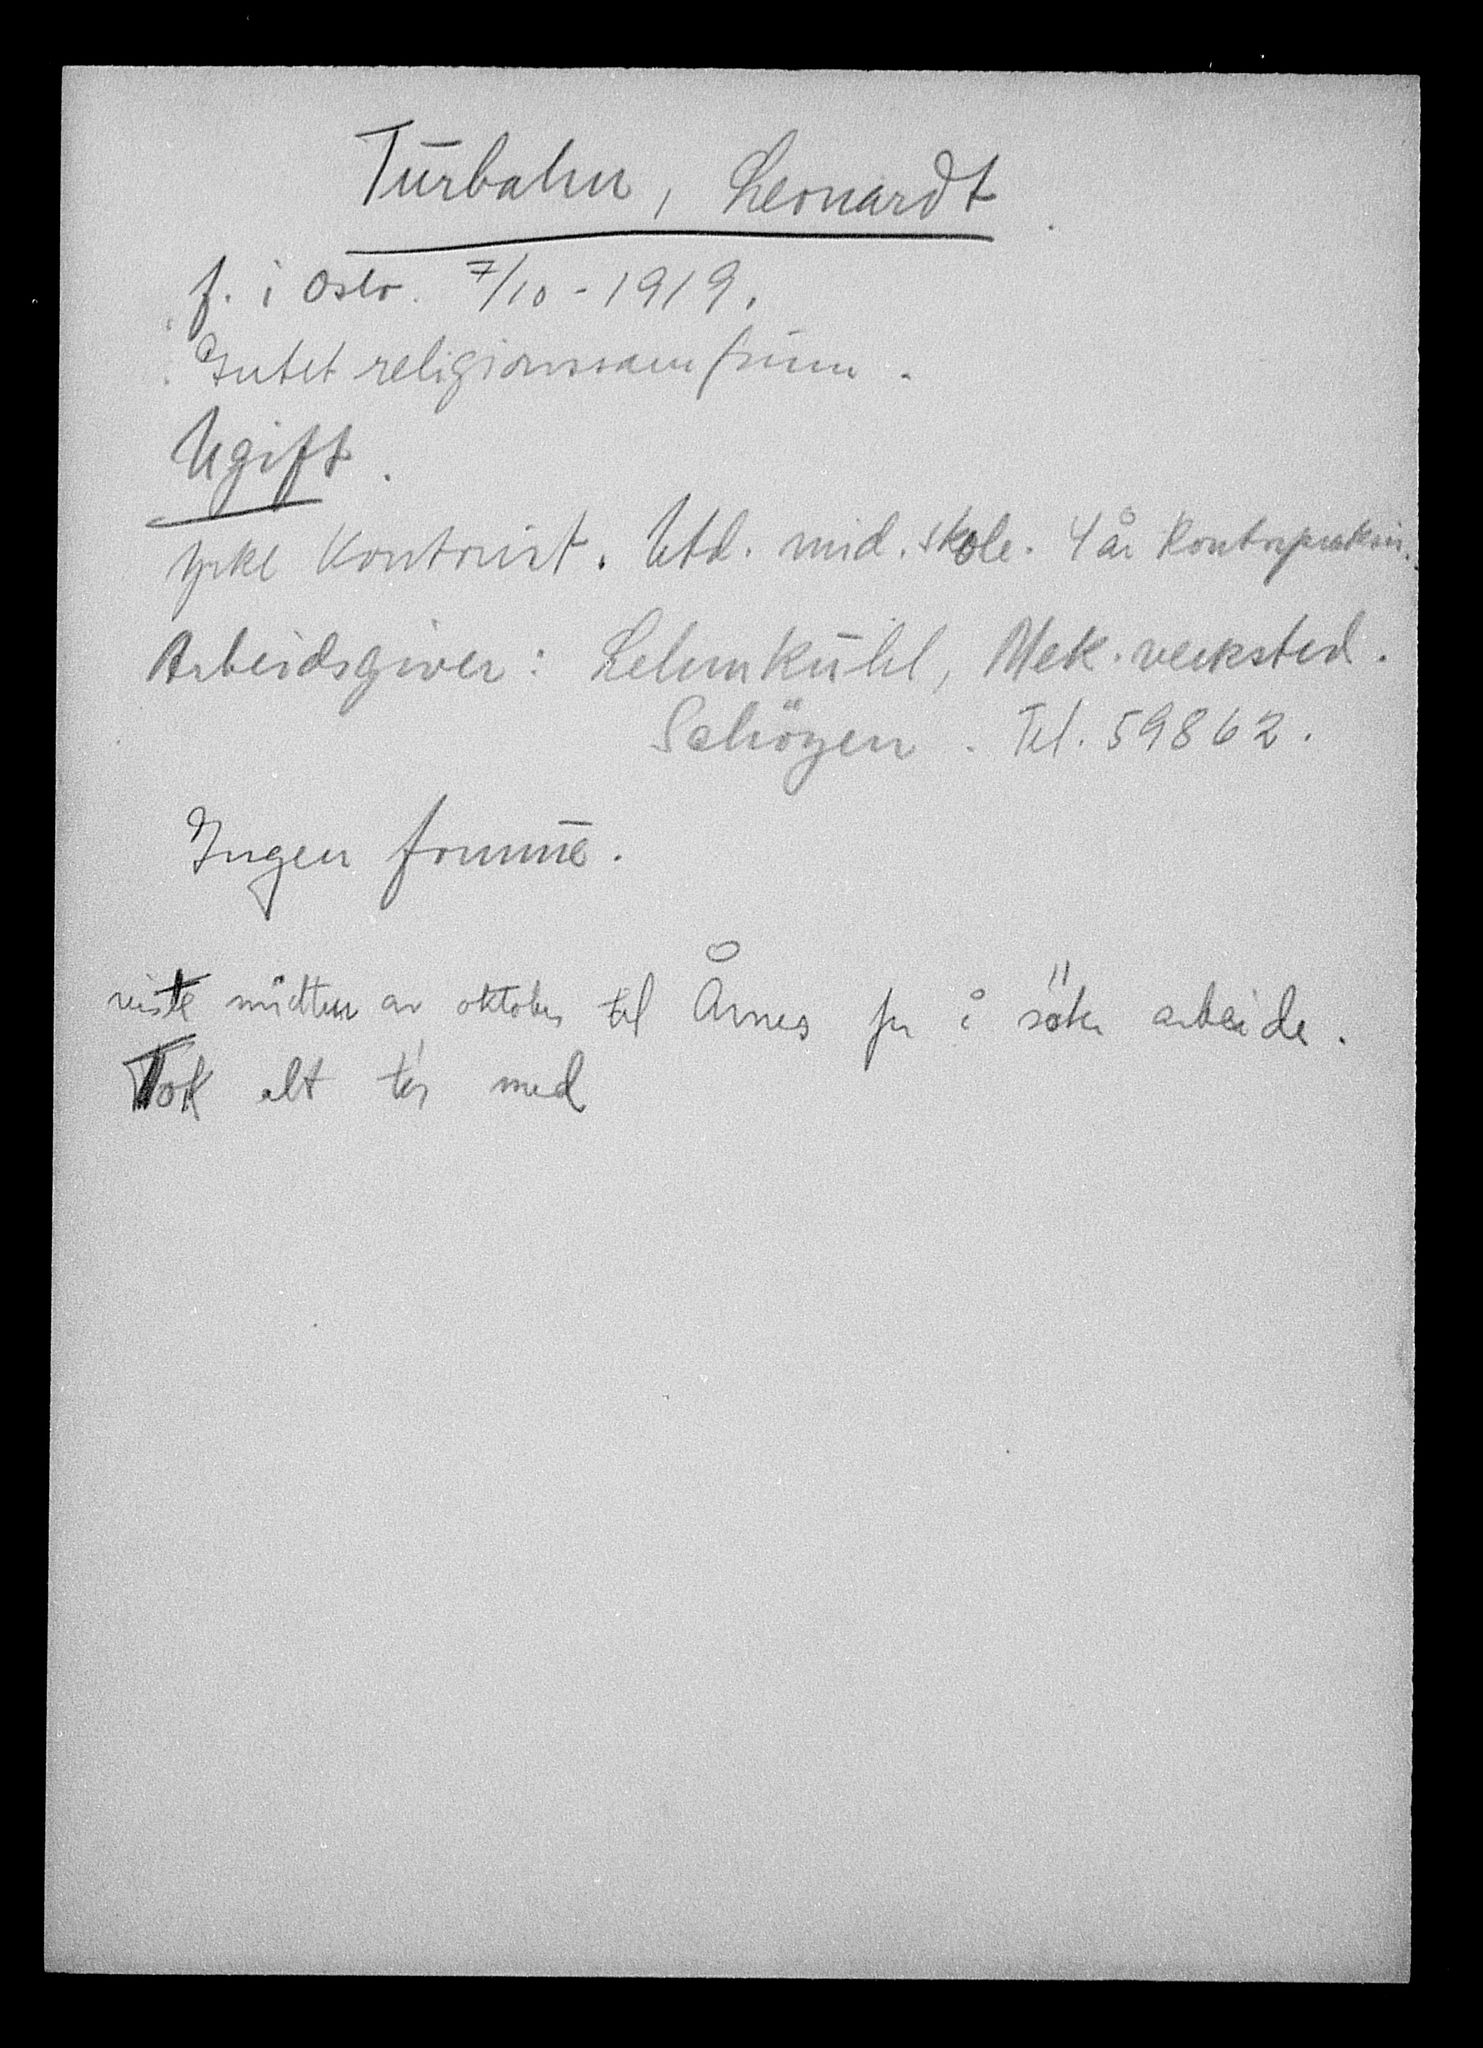 Turbahn, Leonardt
f. i Oslo. 7/10-1919.
Intet religionssamfunn.
Ugift.
yrke Kontorist. Utd. mid. skole. 4 år
Arbeidsgiver: Lehmkuhl, Mek. verksted.
Schöyen. Tel. 59862.
Ingen formue.
reiste midten av oktober til Årnes for å söke arbeide.
Tok alt töy med